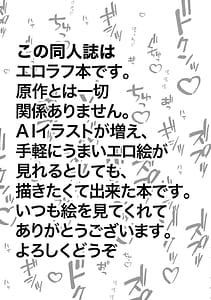 この同人誌は
エロラフ本です。
原作とは一切
関係ありません。
AIイラストが増え、
手軽にうまいエロ絵が
見れるとしても、
描きたくて出来た本です。
いつも絵を見てくれて
ありがとうございます。
よろしくどうぞ